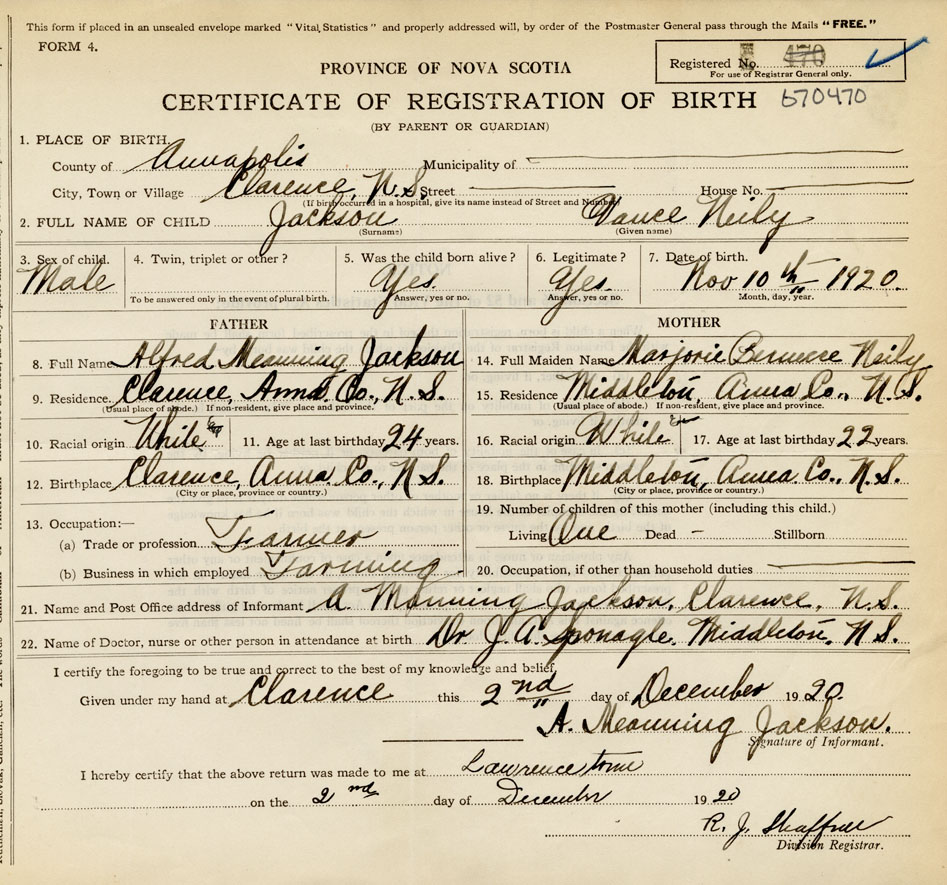 This form if placed in an unsealed envelope marked "Vital Statistics" and properly addressed will, by order of the Postmaster General pass through the Mails "FREE."
FORM 4.
Registered No. 470
For use of Registrar General only.
PROVINCE OF NOVA SCOTIA
CERTIFICATE OF REGISTRATION OF BIRTH 670470
(BY PARENT OR GUARDIAN)
1. PLACE OF BIRTH
County of Annapolis Municipality of
City, Town or Village Clarence, N.S. Street House No.
(If birth occurred in a hospital, give its name instead of Street and Number)
2. FULL NAME OF CHILD Jackson Vance Neily
(Surname) (Given name)
3. Sex of child. 4. Twin, triplet or other? 5. Was the child born alive? 6. Legitimate? 7. Date of birth.
Male Yes. Yes. Nov 10th 1920.
To be answered only in the event of plural birth. Answer, yes or no. Answer, yes or no. Month, day, year.
FATHER
8. Full Name Alfred Meanning Jackson
9. Residence. Clarence, Anna. Co., N.S.
(Usual place of abode.) If non-resident, give place and province.
10. Racial origin White 11. Age at last birthday 24 years.
12. Birthplace Clarence, Anna Co., N.S.
(City or place, province or country.)
13. Occupation:—
(a) Trade or profession Farmer
(b) Business in which employed Farming
MOTHER
14. Full Maiden Name Marjorie Bernice Neily
15. Residence Middleton, Anna Co., N.S.
(Usual place of abode.) If non-resident, give place and province.
16. Racial origin White 17. Age at last birthday 22 years.
18. Birthplace Middleton, Anna Co., N.S.
(City or place, province or country.)
19. Number of children of this mother (including this child.)
Living One Dead - Stillborn
20. Occupation, if other than household duties
21. Name and Post Office address of Informant A. Manning Jackson, Clarence, N.S.
22. Name of Doctor, nurse or other person in attendance at birth Dr J. A. Sponagle, Middleton, N.S.
I certify the foregoing to be true and correct to the best of my knowledge and belief,
Given under my hand at Clarence this 2nd day of December 1920.
A. Meanning Jackson.
Signature of Informant.
I hereby certify that the above return was made to me at Lawrencetown
on the 2nd day of December 1920
R. J. Shaffner
Division Registrar.